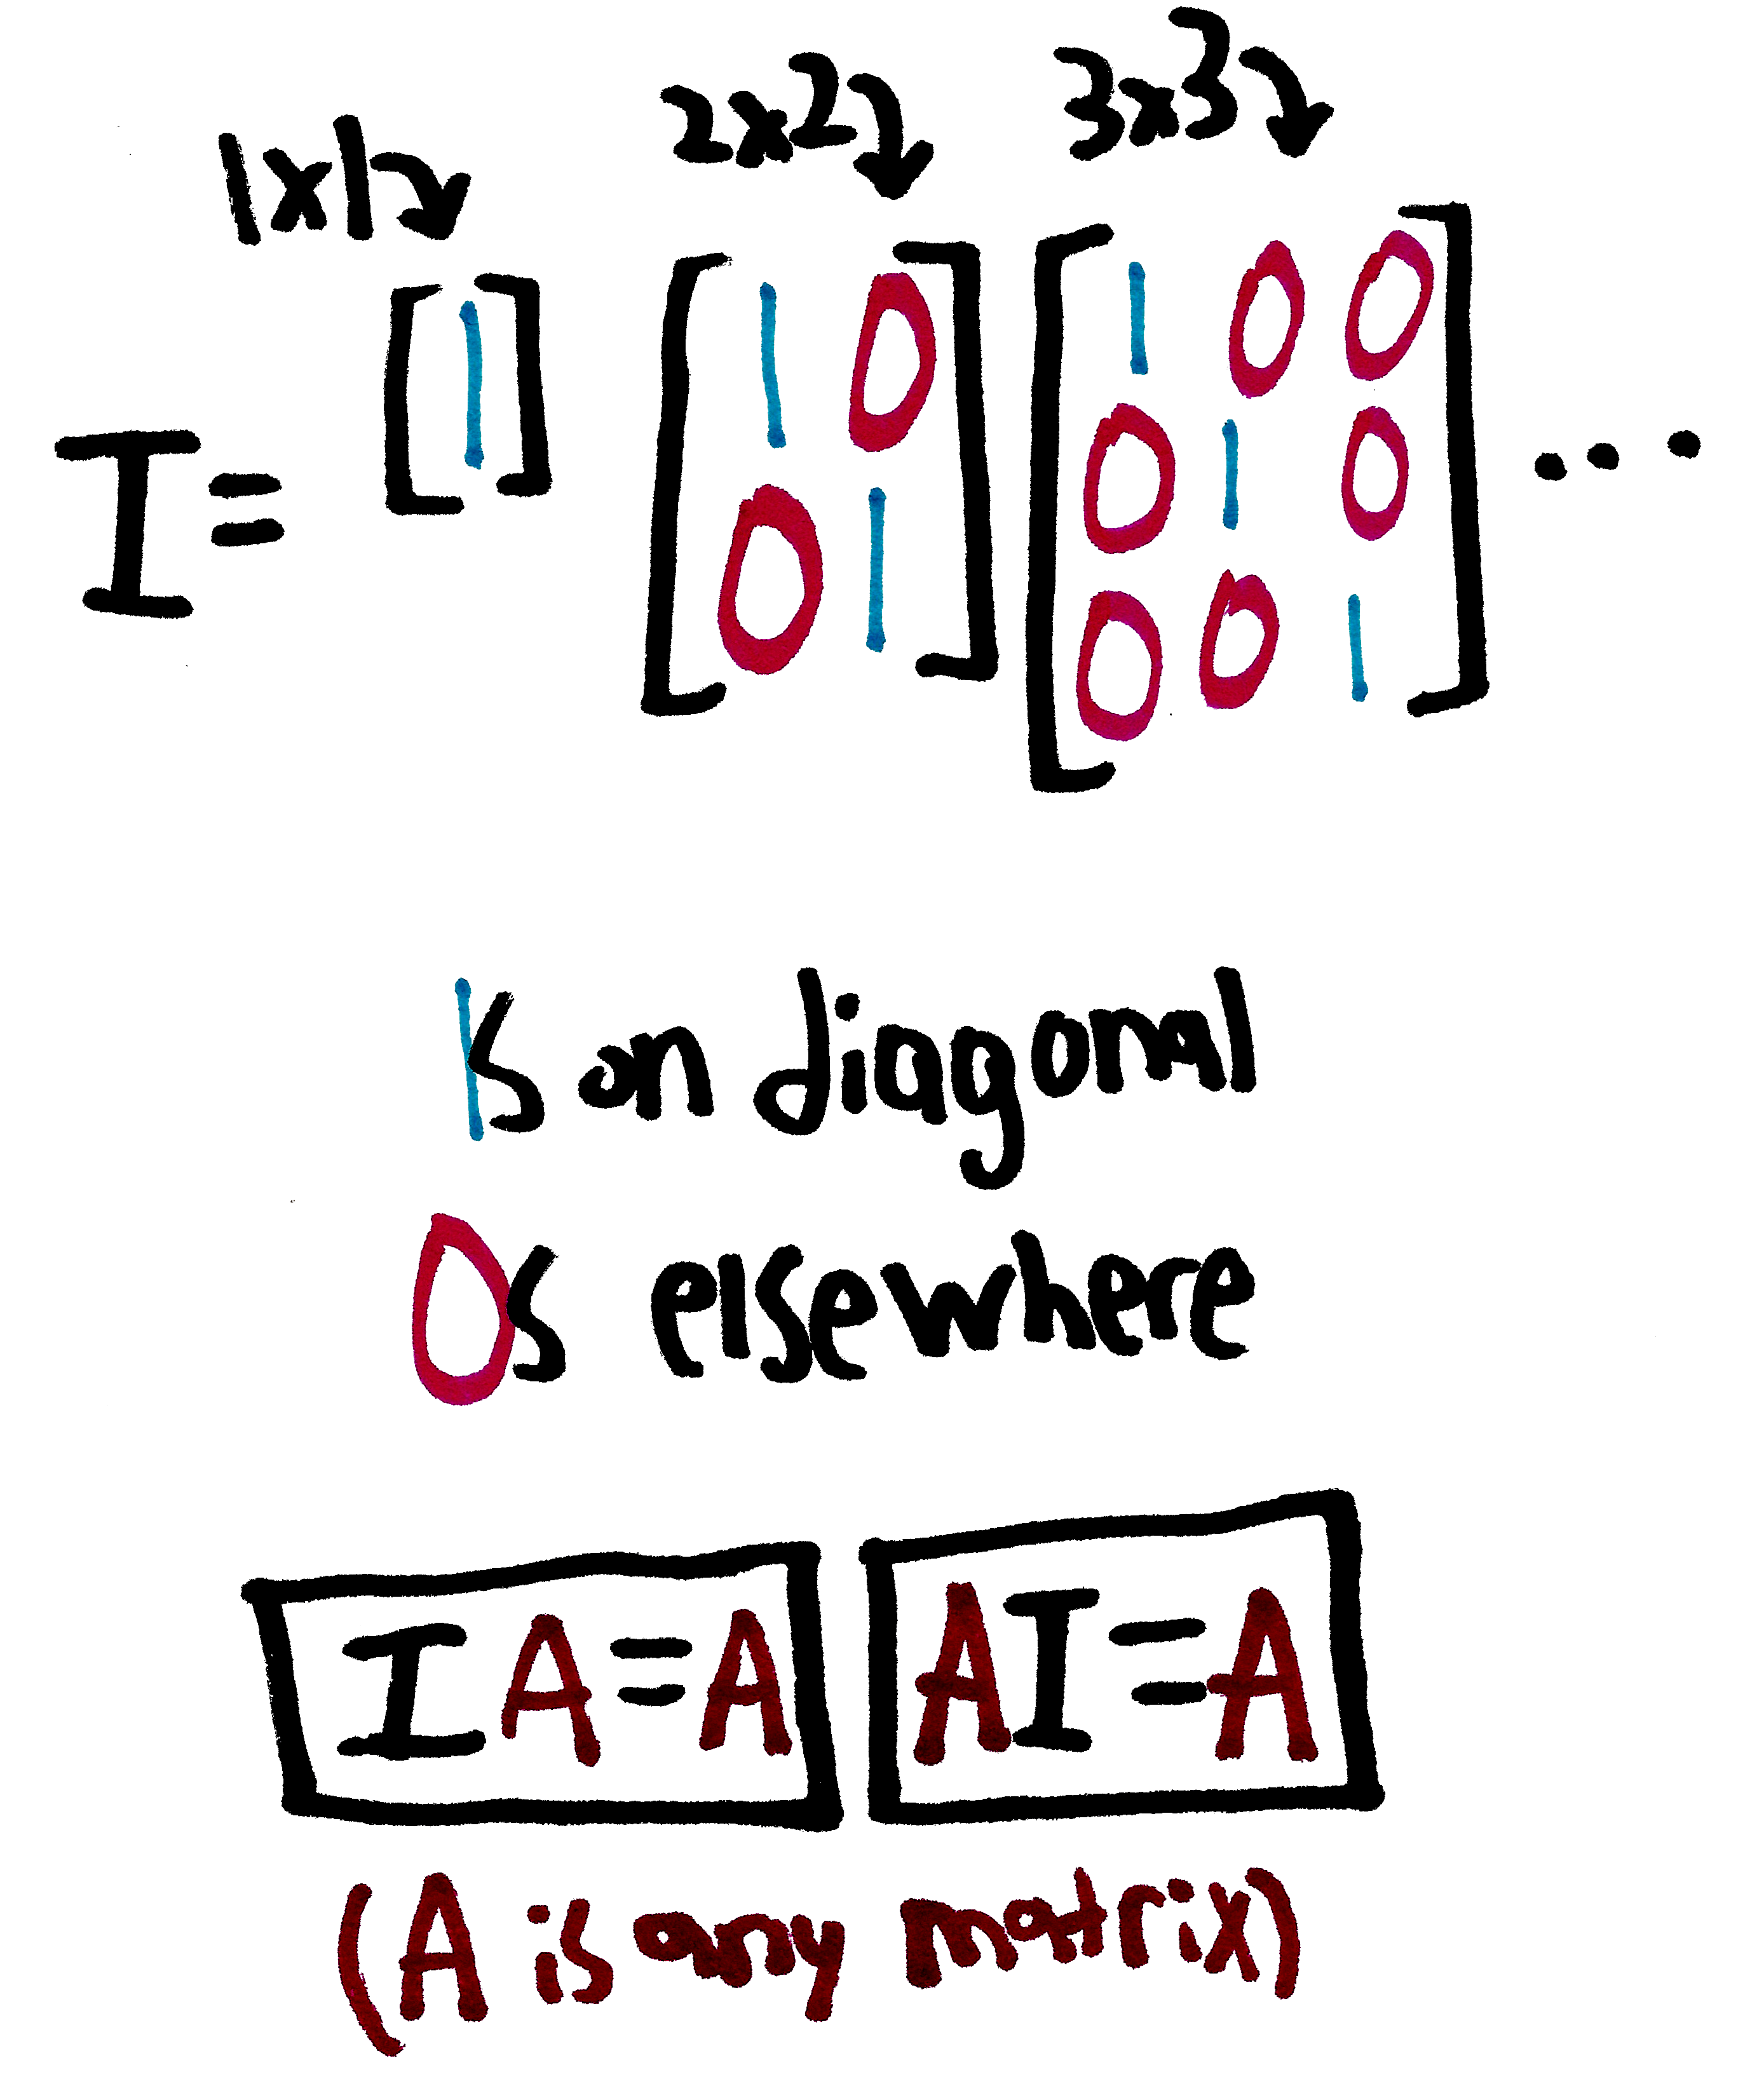 1x1 2x2 3x3
I = [1] [1 0 [1 0 0 ...
0 1] 0 1 0
0 0 1]
1s on diagonal
0s elsewhere
IA=A AI=A
(A is any matrix)